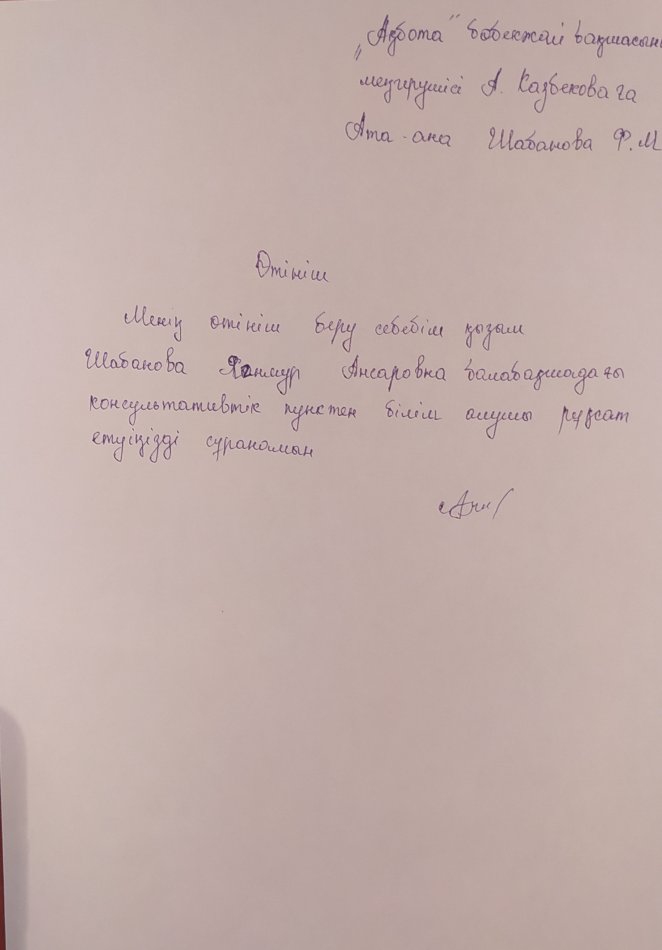 "Ақбота" бөбекжай бақшасын
меңгерушісі А. Казбековаға
Ата-ана Шабанова Ф.М
Өтініш
Менің өтініш беру себебім қызым
Шабанова Ансаровна балабақшадағы
консультативтік пунктен білім алушы рұқсат
етуіңізді сұранамын